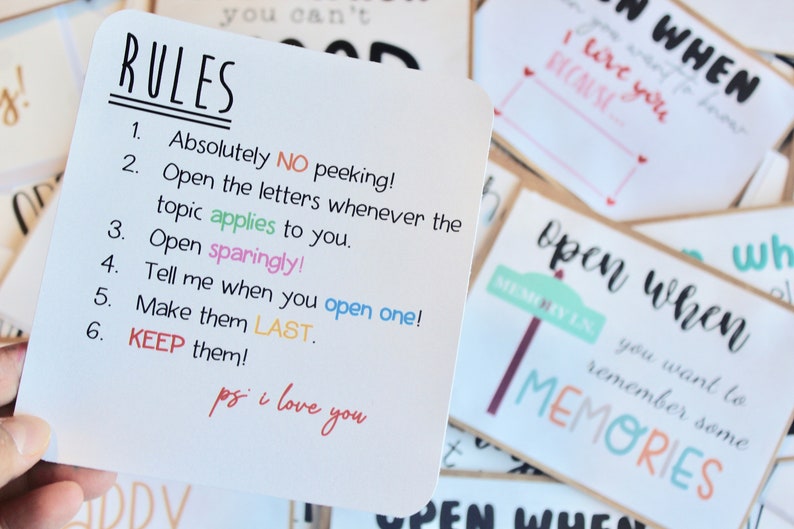 RULES
1. Absolutely NO peeking!
2. Open the letters whenever the
topic applies to you.
3. Open sparingly!
4. Tell me when you open one!
5. Make them LAST.
6. KEEP them!
ps: i love you
you can't
OPEN WHEN
you want to know
I love you
BECAUSE...
open when
MEMORY LN.
you want to
remember some
MEMORIES
open when
OPEN WHEN